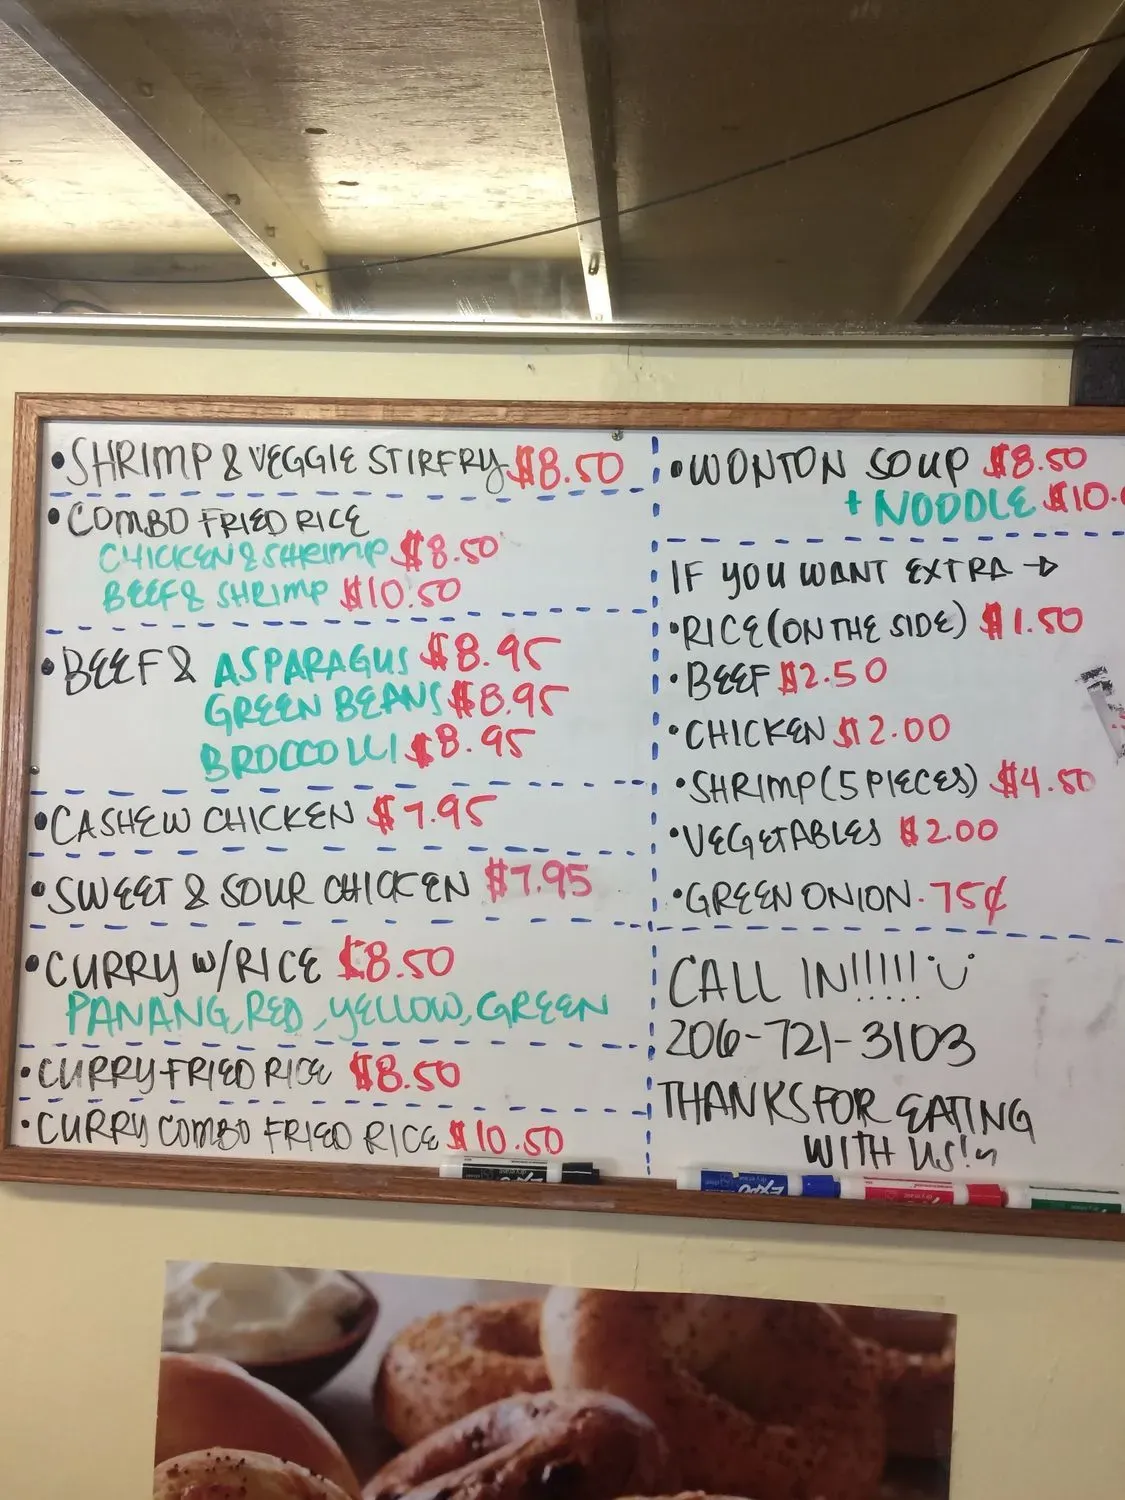 •SHRIMP & VEGGIE STIRFRY $8.50
•COMBO FRIED RICE
CHICKEN & SHRIMP $8.50
BEEF & SHRIMP $10.50
•BEEF & ASPARAGUS $8.95
GREEN BEANS $8.95
BROCCOLLI $8.95
•CASHEW CHICKEN $7.95
•SWEET & SOUR CHICKEN $7.95
•CURRY W/RICE $8.50
PANANG, RED, YELLOW, GREEN
•CURRY FRIED RICE $8.50
•CURRY COMBO FRIED RICE $10.50
•WONTON SOUP $8.50
+ NOODLE $10.
IF YOU WANT EXTRA →
•RICE (ON THE SIDE) $1.50
•BEEF $2.50
•CHICKEN $2.00
•SHRIMP (5 PIECES) $4.50
•VEGETABLES $2.00
•GREEN ONION. 75¢
CALL IN!!!!!
206-721-3103
THANKS FOR EATING
WITH US!
EXPO